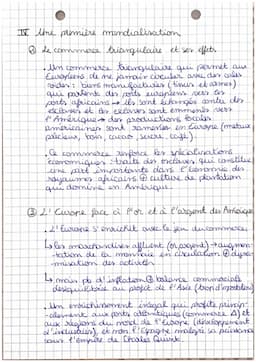 IV Une première mondialisation
① Le commerce triangulaire et ses effets
. Un commerce triangulaire qui permet aux
Européens de ne jamais circuler avec des cales
vides : biens manufacturés (tissus et armes)
qui partent des ports européens vers les
ports africains → ils sont échangés contre des
esclaves et les esclaves sont emmenés vers
l'Amérique → des productions locales
américaines sont ramenées en Europe (métaux
précieux, bois, cacao, sucre, café).
. Ce commerce renforce les spécialisations
économiques : traite des esclaves qui constitue
une part importante dans l'économie des
royaumes africains ⊕ culture de plantation
qui domine en Amérique.
② L'Europe face à l'or et à l'argent des Amériques
. L'Europe s'enrichit avec le jeu du commerce.
↳ les marchandises affluent (or, argent) → augmen-
-tation de la monnaie en circulation ⊕ dyna-
-misation des activités
↳ mais pb d'inflation ⊕ balance commerciale
déséquilibrée au profit de l'Asie
. Un enrichissement inégal qui profite princip-
-alement aux ports atlantiques (commerce Δ) et
aux régions du nord de l'Europe (développement
d'industries), et non l'Espagne malgré sa puissance
sous l'empire de Charles Quint.